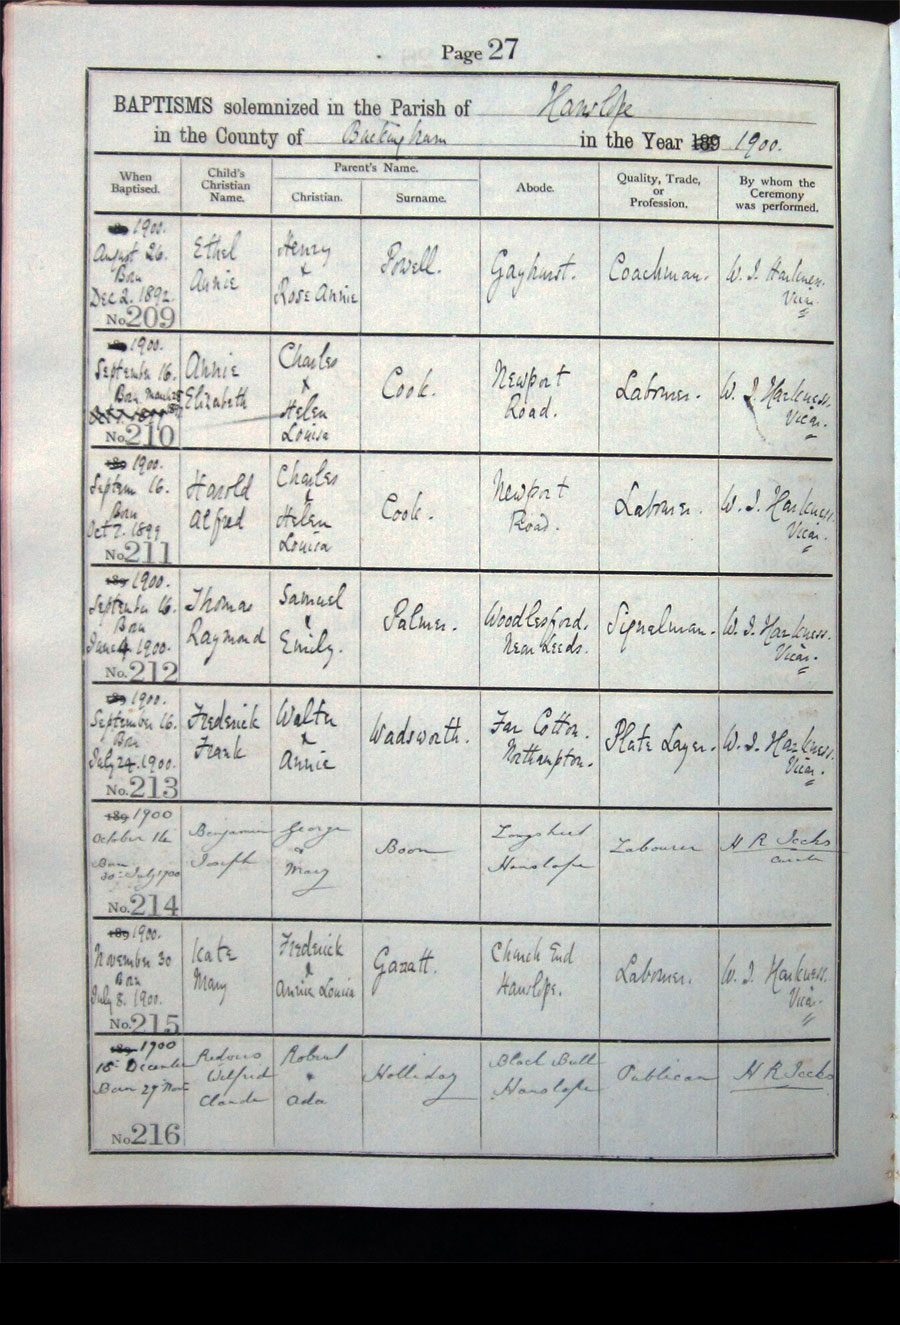 Page 27
BAPTISMS solemnized in the Parish of Hanslope
in the County of Buckingham in the Year 189 1900.
When Baptised.
Child's Christian Name.
Parent's Name.
Christian.
Surname.
Abode.
Quality, Trade, or Profession.
By whom the Ceremony was performed.
1900.
August 26.
Born
Dec 2. 1892.
No. 209
Ethel
Annie
Henry
&
Rose Annie
Powell.
Gayhurst.
Coachman.
W. J. Harkness.
Vicar.
1900.
September 16.
Born March 25
No. 210
Annie
Elizabeth
Charles
&
Helen
Louisa
Cook.
Newport
Road.
Labourer.
W. J. Harkness.
Vicar.
189 1900.
Septem 16.
Born
Oct 7. 1899
No. 211
Harold
Alfred
Charles
&
Helen
Louisa
Cook.
Newport
Road.
Labourer.
W. J. Harkness.
Vicar.
189 1900.
September 16.
Born
June 4 1900.
No. 212
Thomas
Raymond
Samuel
&
Emily.
Palmer.
Woodlesford.
Near Leeds.
Signalman.
W. J. Harkness.
Vicar.
189 1900.
September 16.
Born
July 24. 1900.
No. 213
Frederick
Frank
Walter
&
Annie
Wadsworth.
Far Cotton.
Northampton.
Plate Layer.
W. J. Harkness.
Vicar.
189 1900
October 14
Born
30 July 1900
No. 214
Benjamin
Joseph
George
&
Mary
Boon
Longstreet
Hanslope
Labourer
H R Jecks
Curate
189 1900.
November 30
Born
July 8. 1900.
No. 215
Kate
Mary
Frederick
&
Annie Louisa
Garatt.
Church End
Hanslope.
Labourer.
W. J. Harkness.
Vicar.
189 1900
December
Born 29 Nov
No. 216
Wilfred
Claude
Robert
&
Ada
Holliday
Black Bull
Hanslope
Publican
H R Jecks